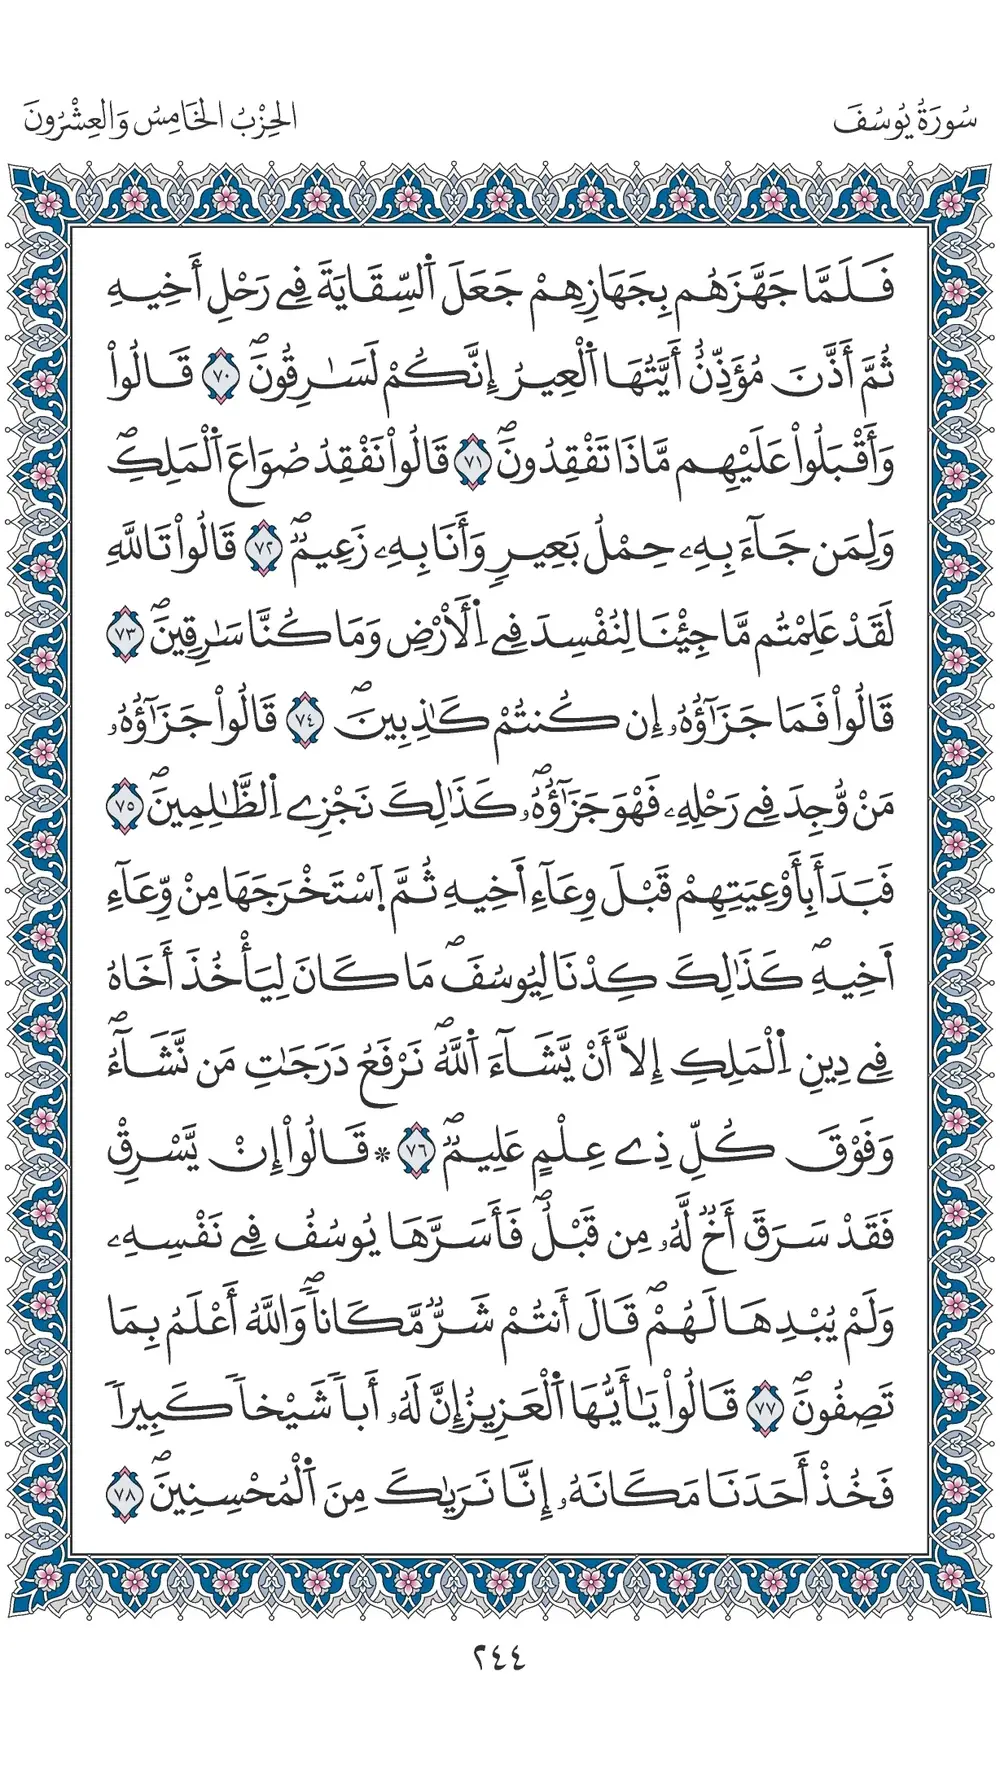 سُورَةُ يُوسُفَ
الحِزْبُ الخَامِسُ وَالعِشْرُونَ
فَلَمَّا جَهَّزَهُم بِجَهَازِهِمْ جَعَلَ اَ۬لسِّقَايَةَ فِے رَحْلِ أَخِيهِ
ثُمَّ أَذَّنَ مُؤَذِّنٌ أَيَّتُهَا اَ۬لْعِيرُ إِنَّكُمْ لَسَٰرِقُونَۖ ٧٠ قَالُواْ
وَأَقْبَلُواْ عَلَيْهِم مَّاذَا تَفْقِدُونَۖ ٧١ قَالُواْ نَفْقِدُ صُوَاعَ اَ۬لْمَلِكِۖ
وَلِمَن جَآءَ بِهِۦ حِمْلُ بَعِيرٖ وَأَنَا بِهِۦ زَعِيمٞۖ ٧٢ قَالُواْ تَاللَّهِ
لَقَدْ عَلِمْتُم مَّا جِئْنَا لِنُفْسِدَ فِے اِ۬لْأَرْضِ وَمَا كُنَّا سَٰرِقِينَۖ ٧٣
قَالُواْ فَمَا جَزَٰٓؤُهُۥ إِن كُنتُمْ كَٰذِبِينَۖ ٧٤ قَالُواْ جَزَٰٓؤُهُۥ
مَنْ وُّجِدَ فِے رَحْلِهِۦ فَهْوَ جَزَٰٓؤُهُۥۖ كَذَٰلِكَ نَجْزِے اِ۬لظَّٰلِمِينَۖ ٧٥
فَبَدَأَ بِأَوْعِيَتِهِمْ قَبْلَ وِعَآءِ اَ۬خِيهِ ثُمَّ اَ۪سْتَخْرَجَهَا مِنْ وِّعَآءِ
اَ۬خِيهِۖ كَذَٰلِكَ كِدْنَا لِيُوسُفَۖ مَا كَانَ لِيَأْخُذَ أَخَاهُ
فِے دِينِ اِ۬لْمَلِكِ إِلَّا أَنْ يَّشَآءَ اَ۬للَّهُۖ نَرْفَعُ دَرَجَٰتِ مَن نَّشَآءُۖ
وَفَوْقَ كُلِّ ذِے عِلْمٍ عَلِيمٞۖ ٧٦ * قَالُواْ إِنْ يَّسْرِقْ
فَقَدْ سَرَقَ أَخٞ لَّهُۥ مِن قَبْلُۖ فَأَسَرَّهَا يُوسُفُ فِے نَفْسِهِۦ
وَلَمْ يُبْدِهَا لَهُمْۖ قَالَ أَنتُمْ شَرّٞ مَّكَاناٗۖ وَاللَّهُ أَعْلَمُ بِمَا
تَصِفُونَۖ ٧٧ قَالُواْ يَٰأَيُّهَا اَ۬لْعَزِيزُ إِنَّ لَهُۥ أَباٗ شَيْخاٗ كَبِيراٗ
فَخُذْ أَحَدَنَا مَكَانَهُۥ إِنَّا نَرَيٰكَ مِنَ اَ۬لْمُحْسِنِينَۖ ٧٨
٢٤٤